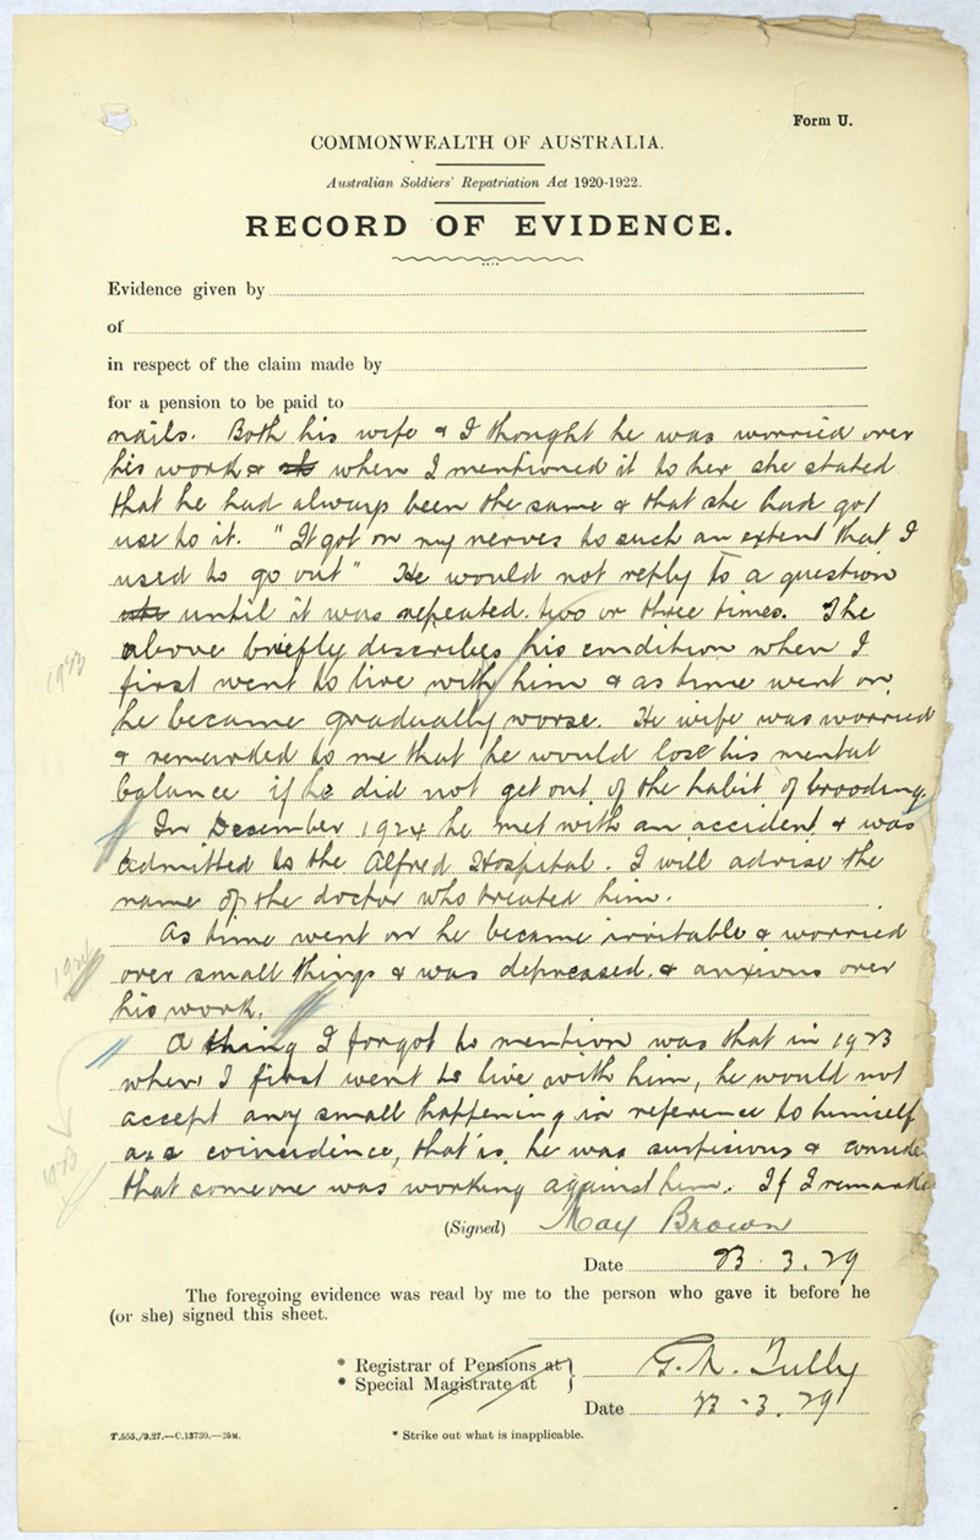 Form U.
COMMONWEALTH OF AUSTRALIA.
Australian Soldiers' Repatriation Act 1920-1922.
RECORD OF EVIDENCE.
Evidence given by
of
in respect of the claim made by
for a pension to be paid to
nails. Both his wife & I thought he was worried over
his work & when I mentioned it to her she stated
that he had always been the same & that she had got
use to it. "It got on my nerves to such an extent that I
used to go out" He would not reply to a question
until it was repeated two or three times. The
above briefly describes his condition when I
1923
first went to live with him & as time went on
he became gradually worse. He wife was worried
& remarked to me that he would lose his mental
balance if he did not get out of the habit of brooding.
In December 1924 he met with an accident & was
admitted to the Alfred Hospital. I will advise the
name of the doctor who treated him.
As time went on he became irritable & worried
1924
over small things & was depressed & anxious over
his work.
A thing I forgot to mention was that in 1923
when I first went to live with him, he would not
accept any small happening in reference to himself
as a coincidence, that is, he was suspicious & conside
1923
that someone was working against him. If I remarke
(Signed) May Brown
Date 23.3.29
The foregoing evidence was read by me to the person who gave it before he
(or she) signed this sheet.
* Registrar of Pensions at
* Special Magistrate at
G. N. Tully
Date 23.3.29
T.555./9.27.—C.13730.—25M.
* Strike out what is inapplicable.